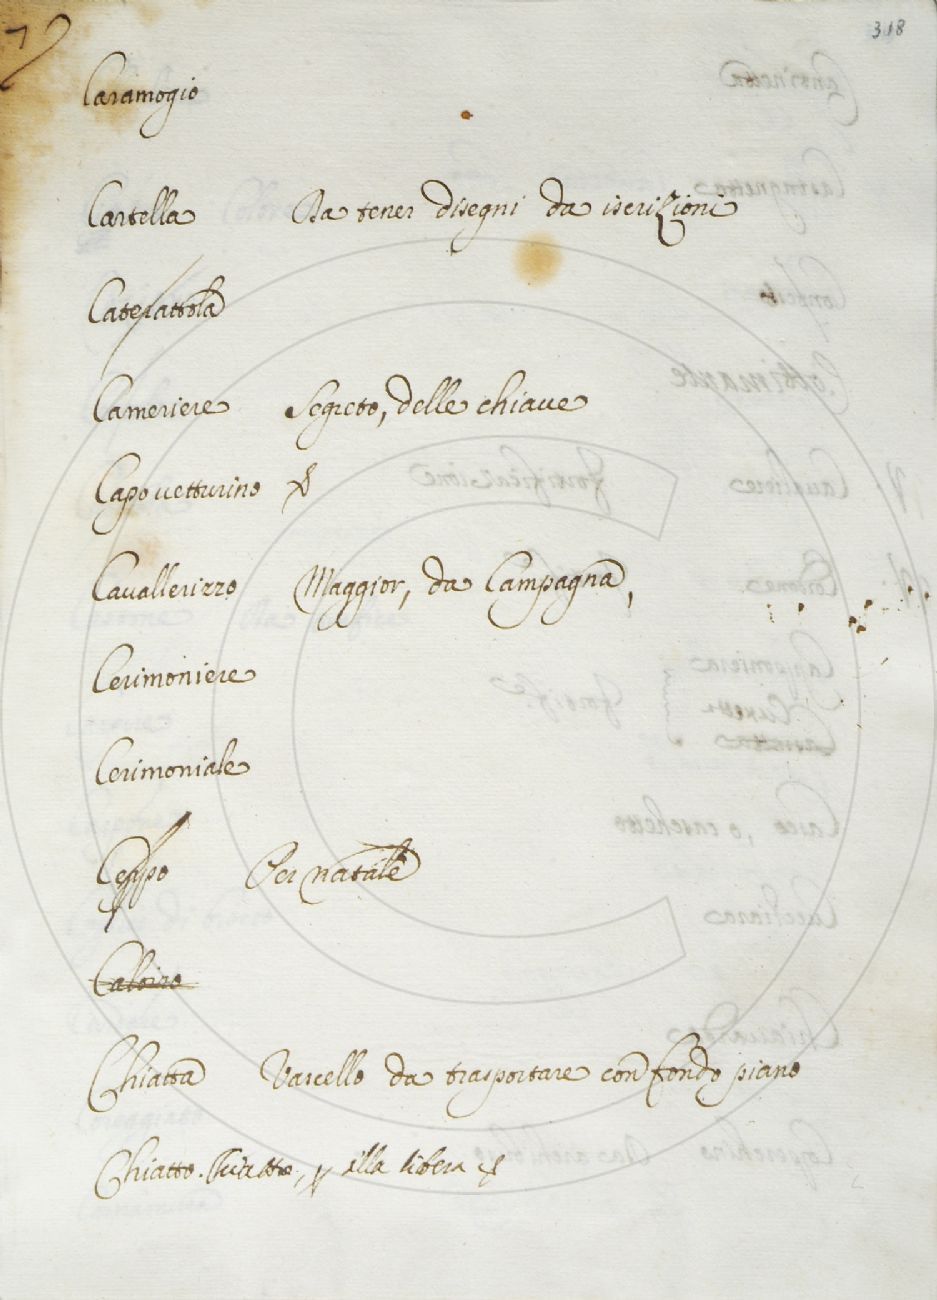 318
Caramogio
Cartella Da tener disegni da iscrizioni
Caterattola
Cameriere Segreto, delle chiave
Capovetturino
Cavallerizzo Maggior, da Campagna,
Cerimoniere
Cerimoniale
Ceppo Per natale
Chiatta Vascello da trasportare con fondo piano
Chiatto. alla libera